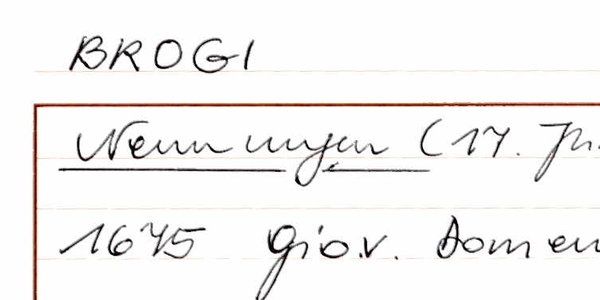 BROGI
Nennungen (17. Jh.
1675 Giov. Domen